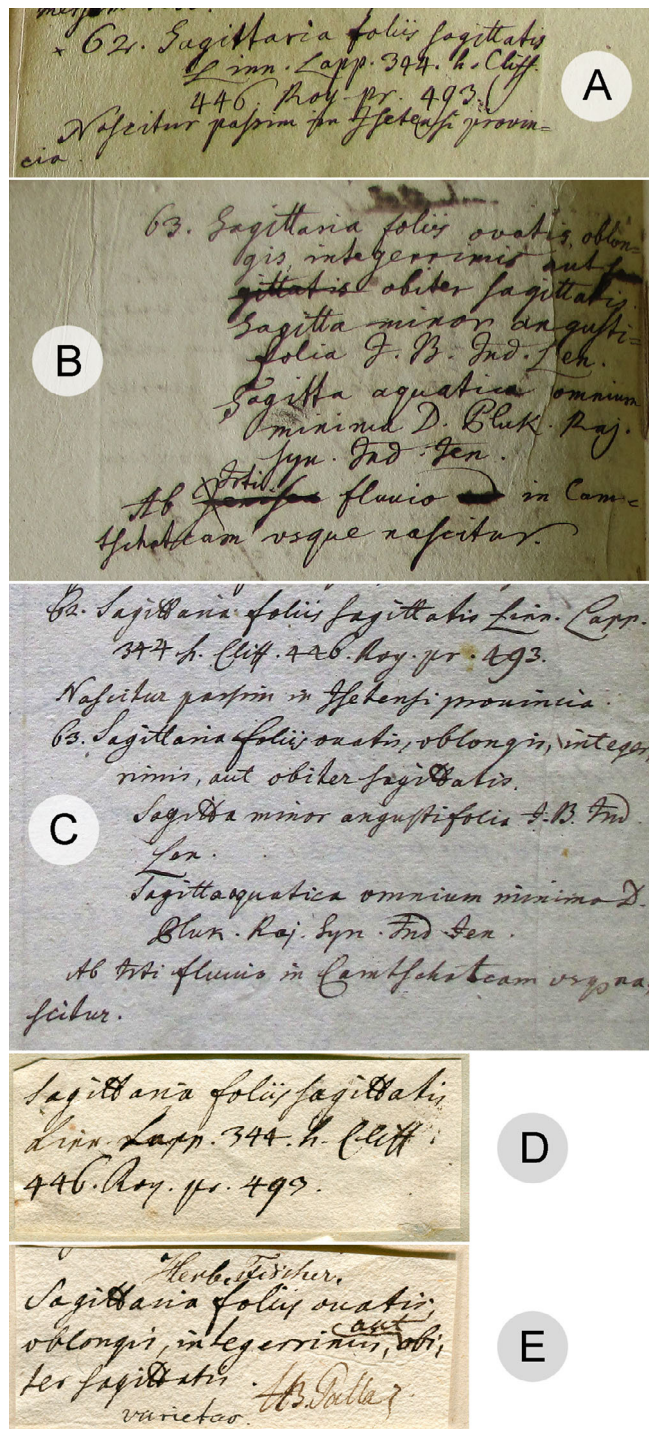 × 62. Sagittaria foliis sagittatis
Linn. Lapp. 344. h. Cliff.
446. Roy. pr. 493.
Nascitur passim in Isetensi provin=
cia.
A
63. Sagittaria foliis ovatis, oblon=
gis, integerrimis aut sa
gittatis obiter sagittatis.
Sagitta minor angusti=
folia J. B. Ind. Len.
Sagitta aquatica omnium
minima D. Pluk. Raj.
Syn. Ind. Jen.
Irti
Ab Jenisea fluvio in Cam=
tschatcam usque nascitur.
B
62. Sagittaria foliis sagittatis Linn. Lapp.
344 h. Cliff. 446. Roy. pr. 493.
Nascitur passim in Isetensi provincia.
63. Sagittaria foliis ovatis, oblongis, integer,
rimis, aut obiter sagittatis.
Sagitta minor angustifolia J. B. Ind
Len.
Sagitta aquatica omnium minima D.
Pluk. Raj. Syn. Ind Jen.
Ab Irti fluvio in Camtschatcam usq na,
scitur.
C
Sagittaria foliis sagittatis
Linn. Lapp. 344. h. Cliff
446. Roy. pr. 493.
D
Herb. Fischer.
Sagittaria foliis ovatis,
aut
oblongis, integerrimis, obi,
ter sagittatis.
varietas.
HB. Pallas
E